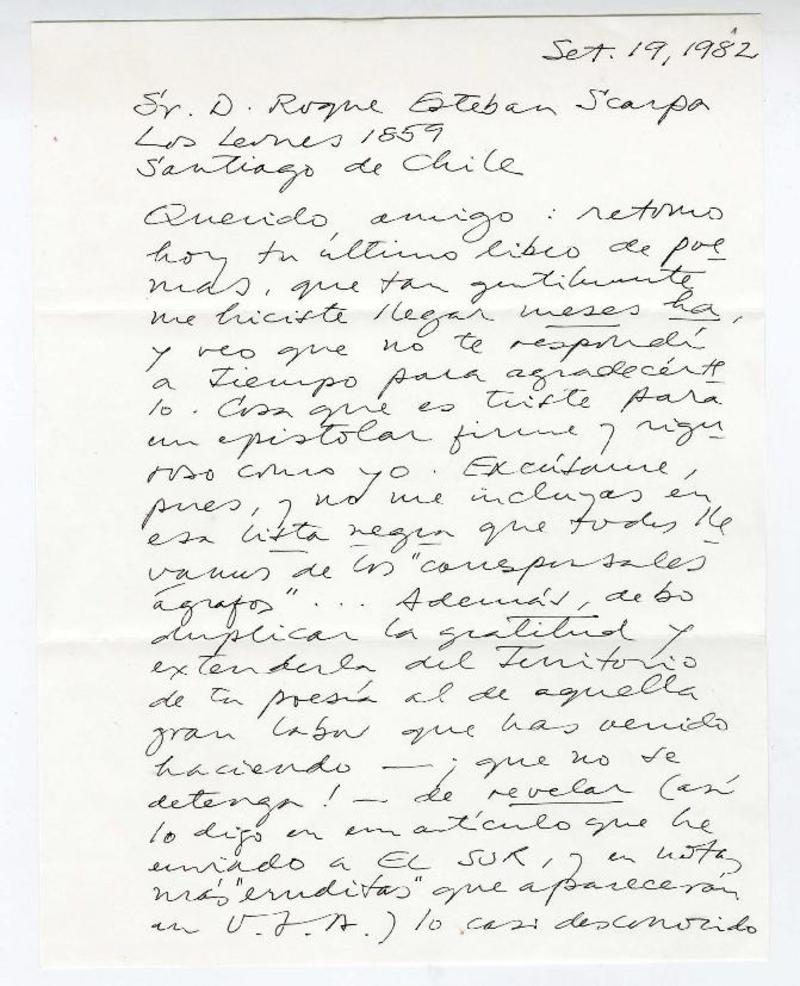 Set. 19, 1982
Sr. D. Roque Esteban Scarpa
Los Leones 1859
Santiago de Chile
Querido amigo: retomo
hoy tu último libro de poe-
mas, que tan gentilmente
me hiciste llegar meses ha,
y veo que no te respondí
a tiempo para agradecérte-
lo. Cosa que es triste para
un epistolar firme y rigu-
roso como yo. Excúsame,
pues, y no me incluyas en
esa lista negra que todos lle-
vamos de los "corresponsales
ágrafos"... Además, debo
duplicar la gratitud y
extenderla del Territorio
de tu poesía al de aquella
gran labor que has venido
haciendo — ¡que no se
detenga! — de revelar (así
lo digo en un artículo que he
enviado a EL SUR, y en notas
más "eruditas" que aparecerán
en U.S.A.) lo casi desconocido